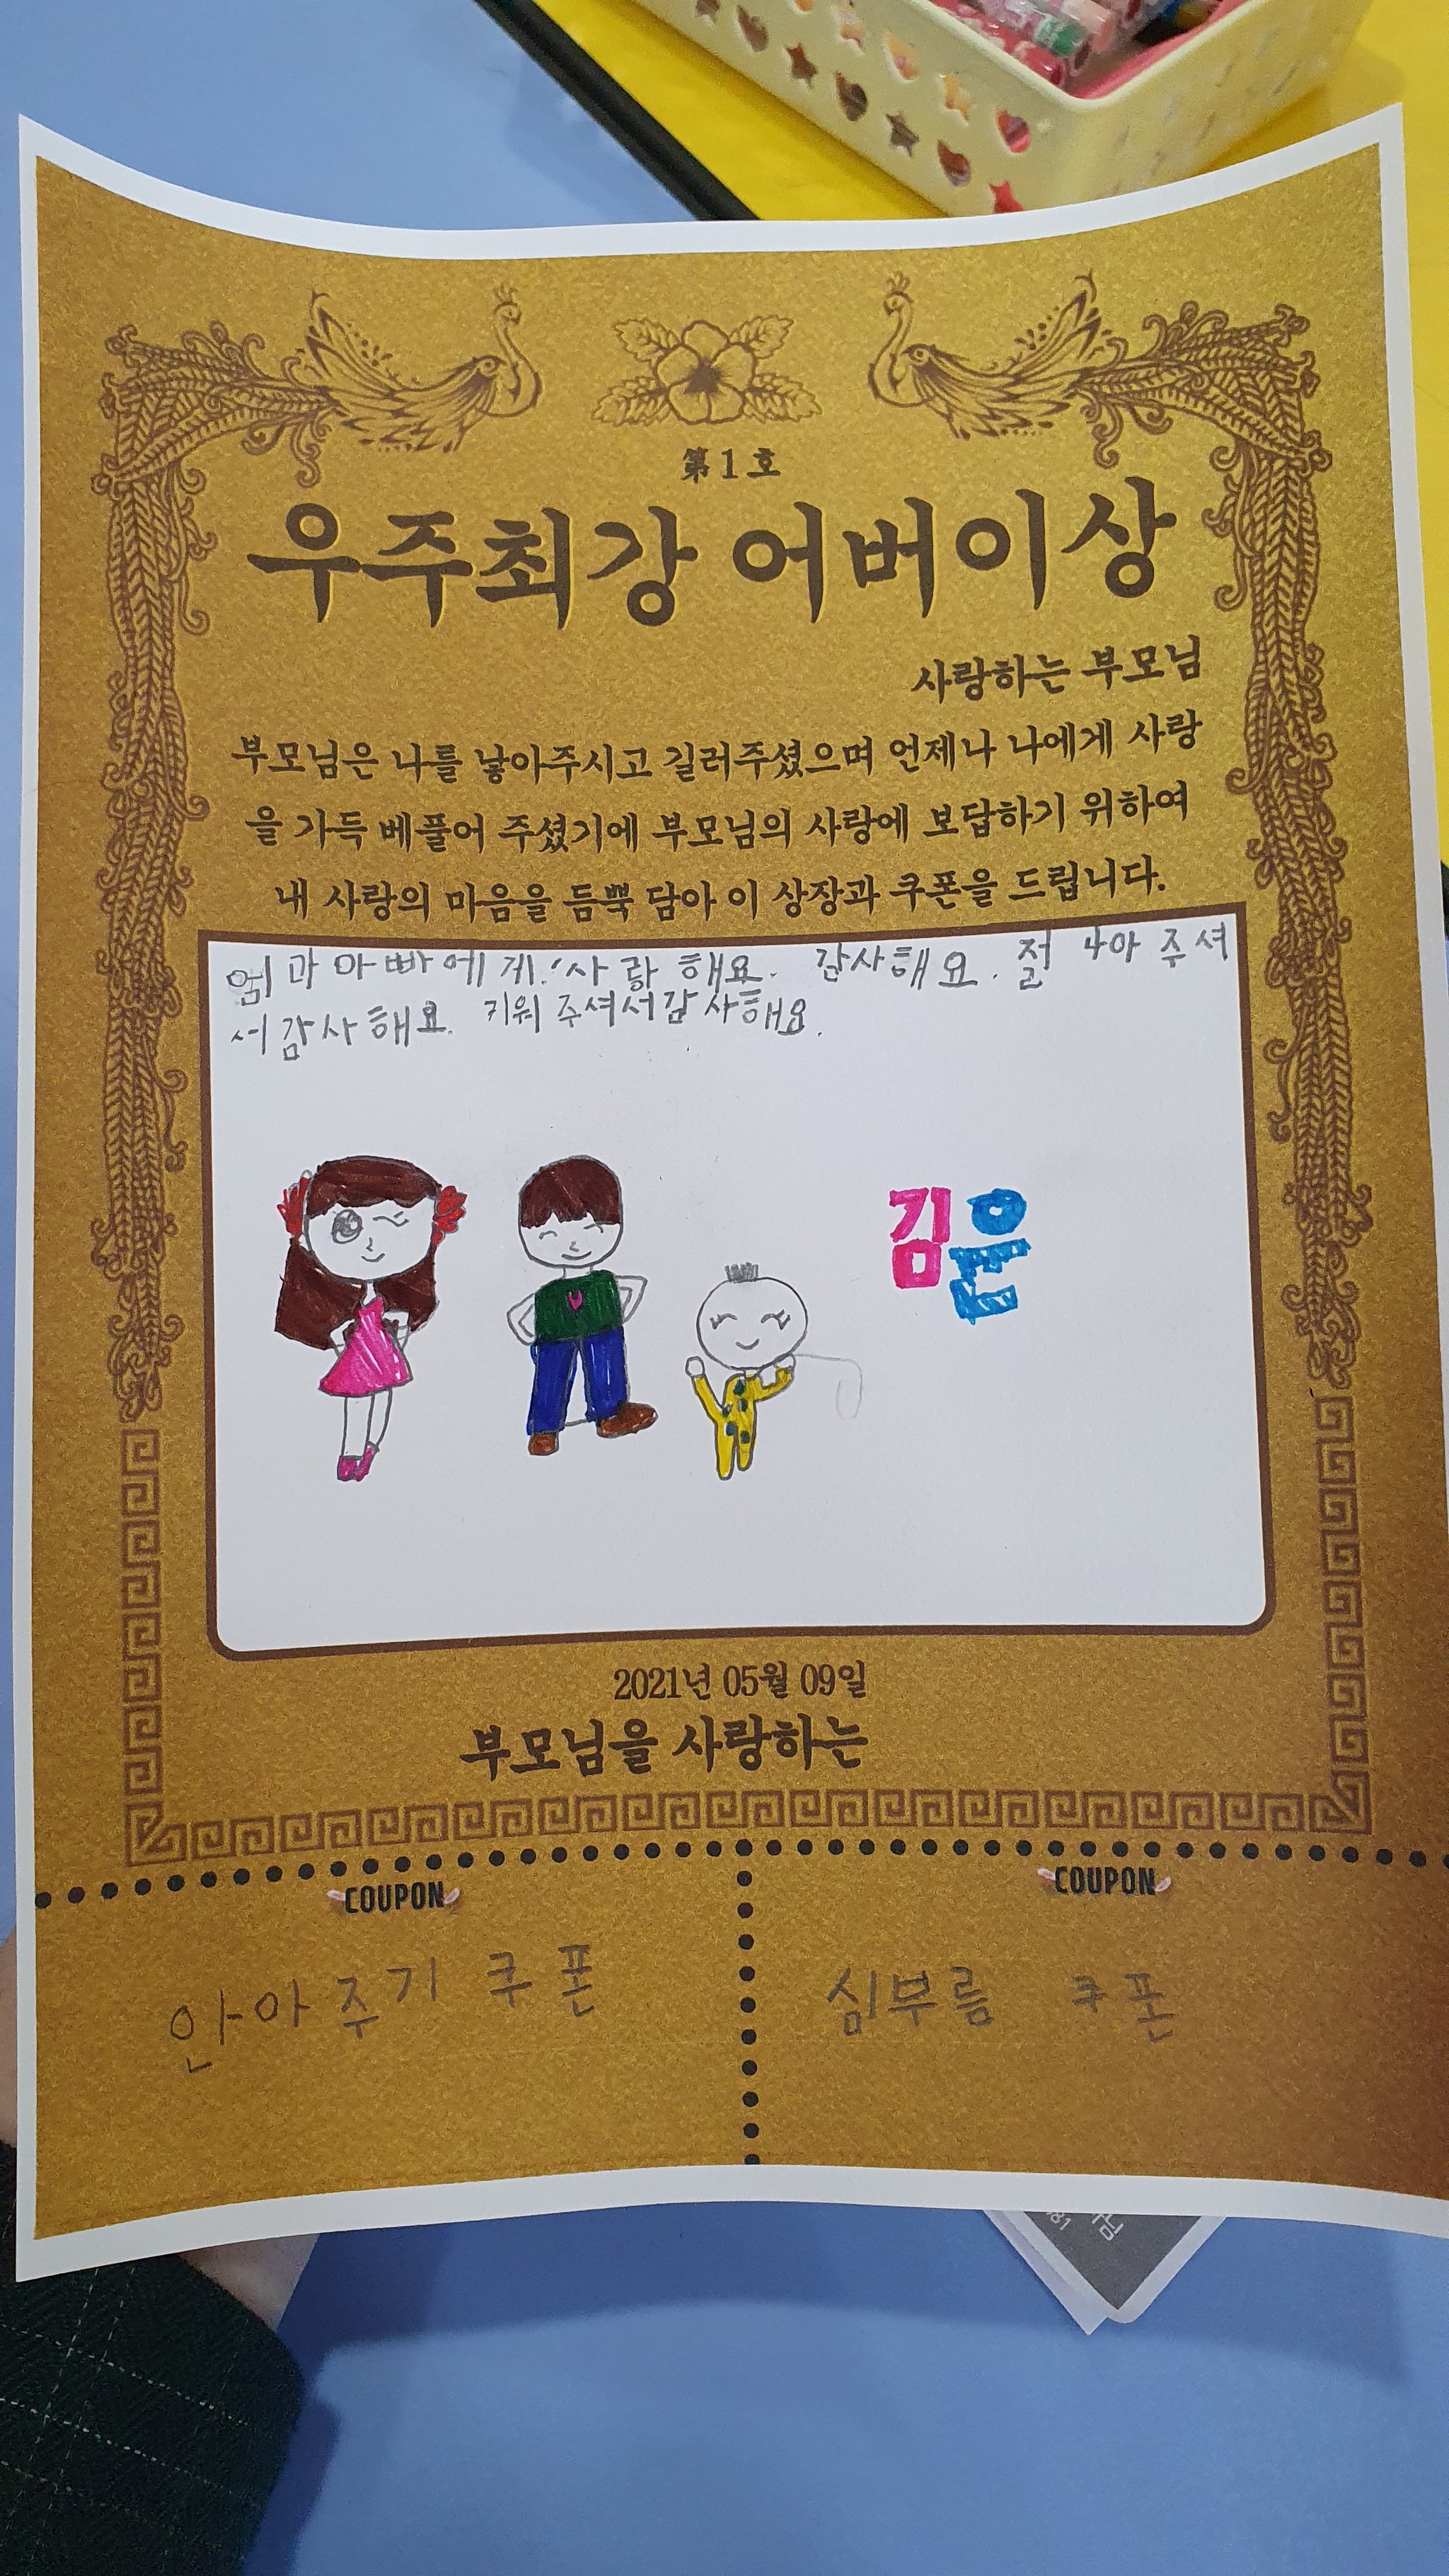 第1호
우주최강 어버이상
사랑하는 부모님
부모님은 나를 낳아주시고 길러주셨으며 언제나 나에게 사랑
을 가득 베풀어 주셨기에 부모님의 사랑에 보답하기 위하여
내 사랑의 마음을 듬뿍 담아 이 상장과 쿠폰을 드립니다.
엄마과 아빠에게! 사랑해요. 감사해요. 절 나아 주셔
서 감사해요. 키워 주셔서 감사해요.
김윤
2021년 05월 09일
부모님을 사랑하는
COUPON
COUPON
안아주기 쿠폰
심부름 쿠폰